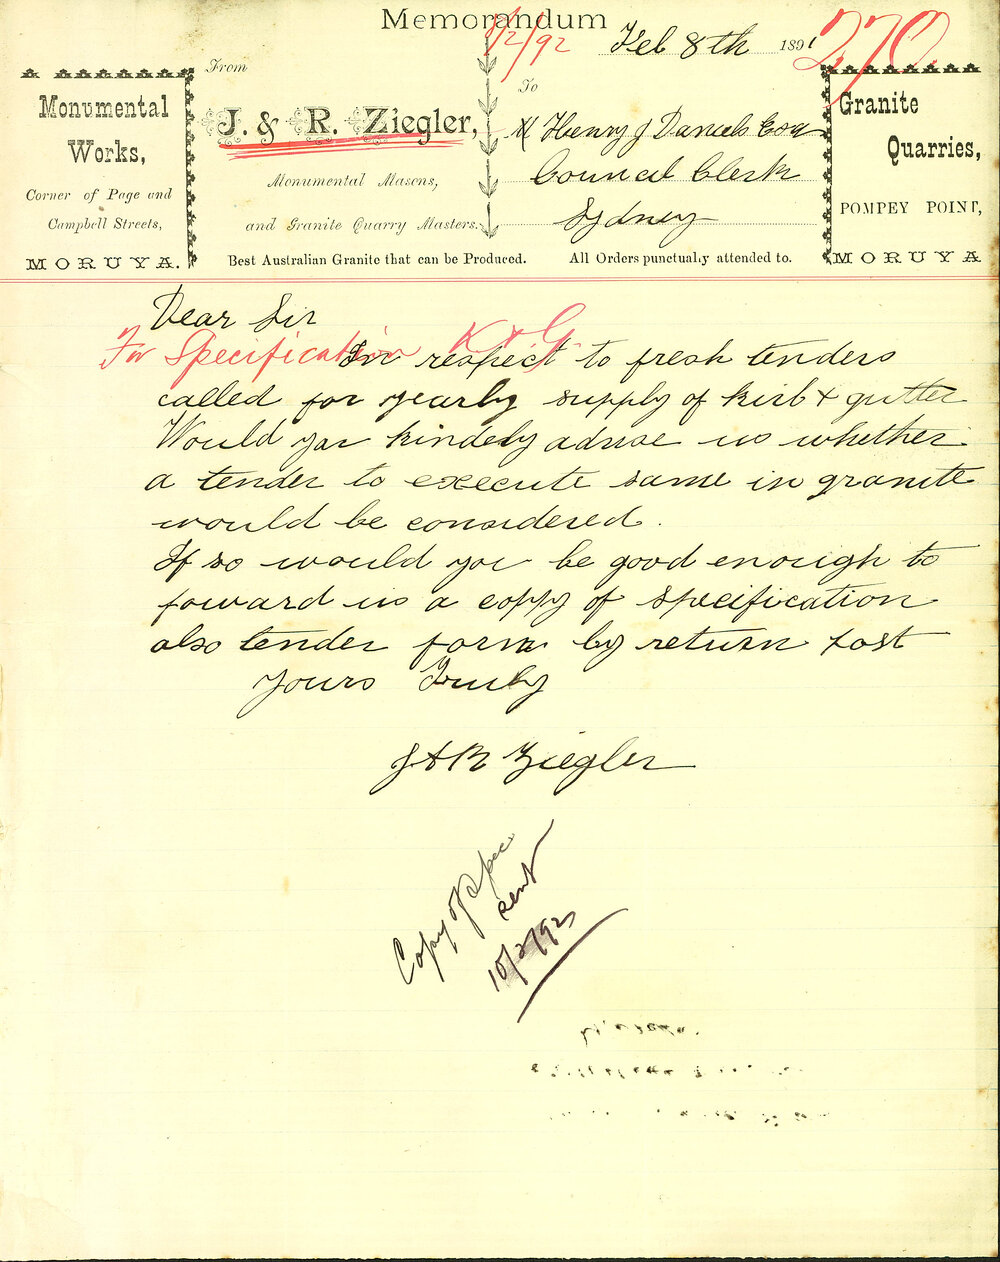 Memorandum
/2/92
Feb 8th 1891
270
Monumental
Works,
Corner of Page and
Campbell Streets,
MORUYA.
From
J. & R. Ziegler,
Monumental Masons,
and Granite Quarry Masters.
To
Henry J Daniels Esq
Council Clerk
Sydney
Granite
Quarries,
POMPEY POINT,
MORUYA
Best Australian Granite that can be Produced. All Orders punctually attended to.
Dear Sir
For Specification K & G.
In respect to fresh tenders
called for yearly supply of kirb & gutter
Would you kindely advise us whether
a tender to execute same in granite
would be considered.
If so would you be good enough to
foward us a coppy of specification
also tender form by return Post
Yours Truly
J & R Ziegler
Copy of Spec
sent
10/2/92